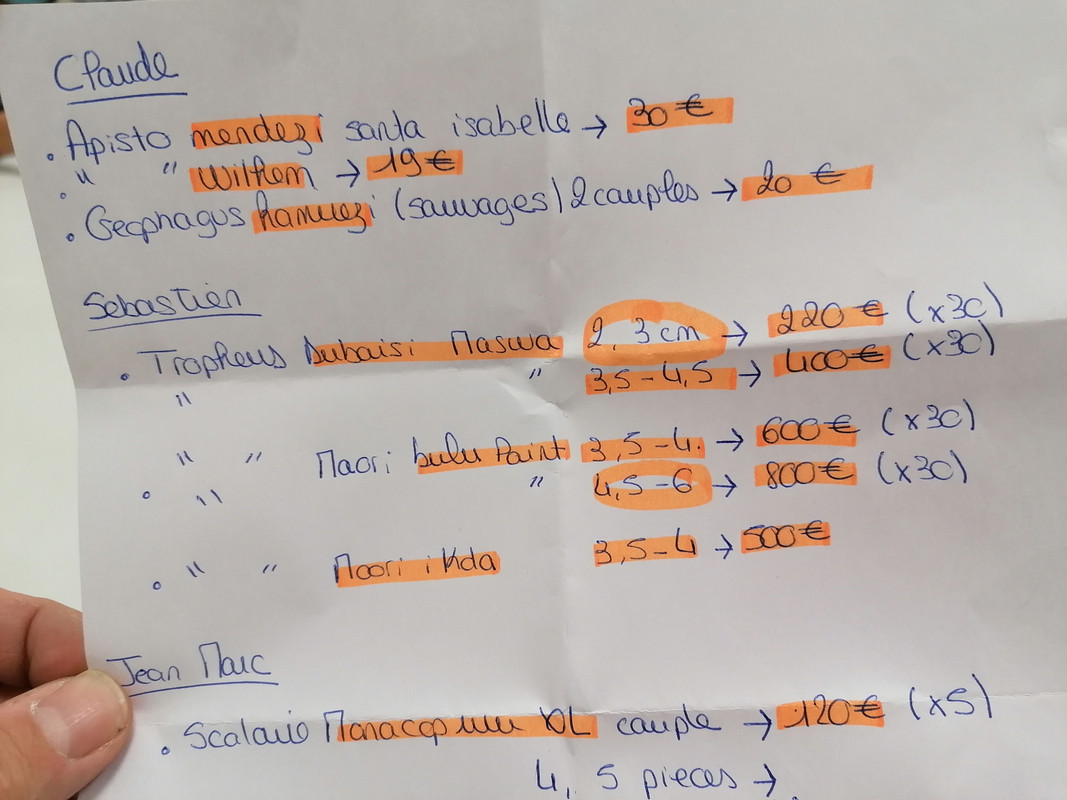 Claude
. Apisto mendezi santa isabelle → 30 €
. " " Wilhem → 19 €
. Geophagus (sauvages) 2 couples → 20 €
Sebastien
. Tropheus Dubaisi Maswa 2,3 cm → 220 € (x30)
" " 3,5-4,5 → 400 € (x30)
" " Moori bulu Point 3,5-4. → 600 € (x30)
. " " 4,5-6 → 800 € (x30)
. " " Moori iKda 3,5-4 → 500 €
Jean Marc
. Scalaire XL couple → 120 € (x5)
4, 5 pieces →